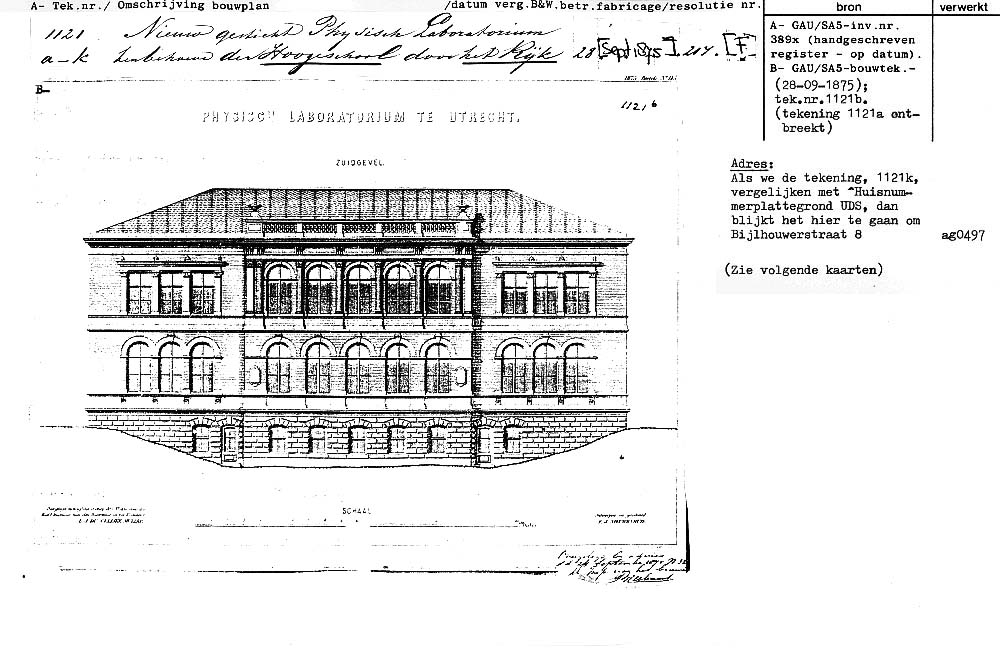 A- Tek.nr./ Omschrijving bouwplan /datum verg.B&W.betr.fabricage/resolutie nr. bron verwerkt
1121 Nieuw gesticht Physisch Laboratorium
a-k ten behoeve der Hoogeschool door het Rijk 28 [Sept 1875] 214. [F]
A- GAU/SA5-inv.nr.
389x (handgeschreven
register - op datum).
B- GAU/SA5-bouwtek.-
(28-09-1875);
tek.nr.1121b.
(tekening 1121a ont-
breekt)
B-
1121 b
PHYSISCH LABORATORIUM TE UTRECHT.
ZUIDGEVEL.
Adres:
Als we de tekening, 1121k,
vergelijken met "Huisnum-
merplattegrond UDS, dan
blijkt het hier te gaan om
Bijlhouwerstraat 8 ag0497
(Zie volgende kaarten)
SCHAAL